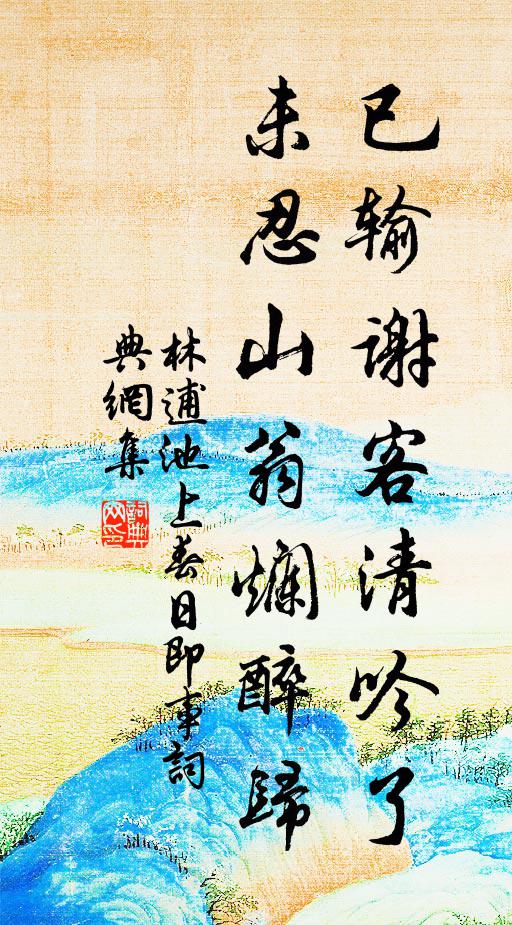 已輸謝客清吟了
未忍山翁爛醉歸
林逋池上春日即事詞
典網集
詞典網印